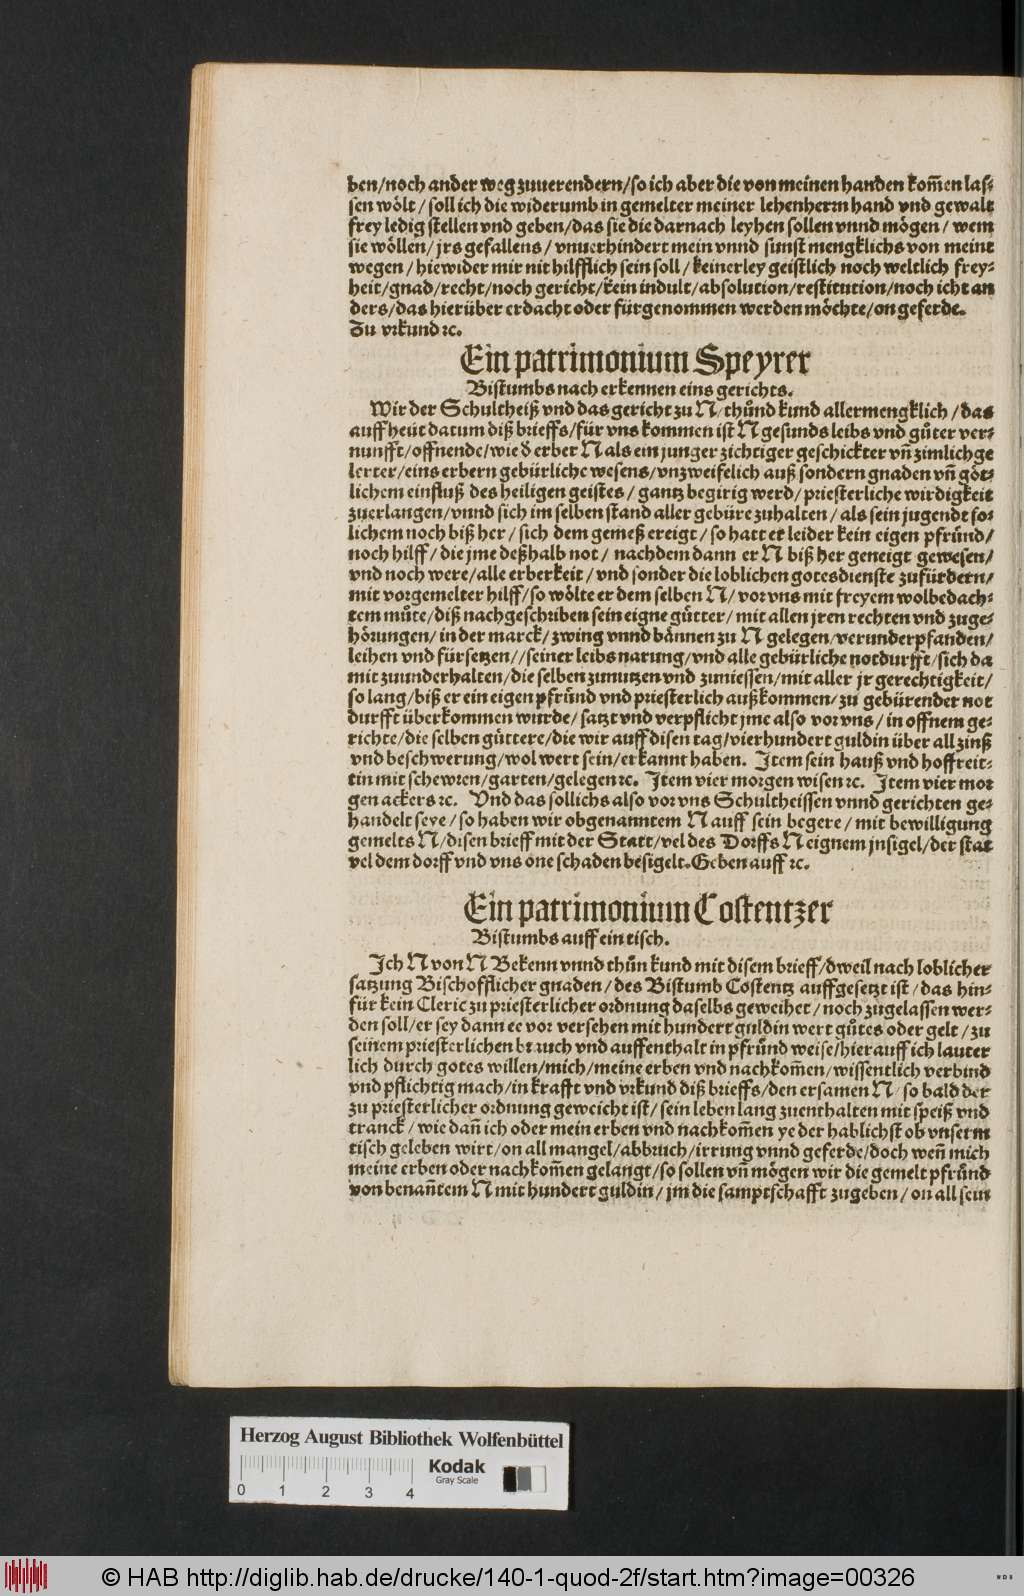 ben/noch ander weg zuuerendern/so ich aber die von meinen handen kom̄en las⸗
sen wölt/ soll ich die widerumb in gemelter meiner lehenherrn hand vnd gewalt
frey ledig stellen vnd geben/das sie die darnach leyhen sollen vnnd mögen/ wem
sie wöllen/ jrs gefallens/ vnuerhindert mein vnnd sunst mengklichs von meint
wegen/ hiewider mir nit hilfflich sein soll/ keinerley geistlich noch weltlich frey⸗
heit/gnad/recht/noch gericht/kein indult/absolution/restitution/noch icht an
ders/das hierüber erdacht oder fürgenommen werden möchte/on geferde.
Zu vrkund ꝛc.
Ein patrimonium Speyrer
Bistumbs nach erkennen eins gerichts.
Wir der Schultheiß vnd das gericht zu N/thuͦnd kund allermengklich/das
auff heüt datum diß brieffs/für vns kommen ist N gesunds leibs vnd guͦter ver⸗
nunfft/offnende/wie d̄ erber N als ein junger zichtiger geschickter vn̄ zimlich ge
lerter/eins erbern gebürliche wesens/vnzweifelich auß sondern gnaden vn̄ göt⸗
lichem einfluß des heiligen geistes/ gantz begirig werd/priesterliche wirdigkeit
zuerlangen/vnnd sich im selben stand aller gebüre zuhalten/ als sein jugendt so⸗
lichem noch biß her/ sich dem gemeß ereigt/ so hatt er leider kein eigen pfruͤnd/
noch hilff/ die jme deßhalb not/ nachdem dann er N biß her geneigt gewesen/
vnd noch were/alle erberkeit/ vnd sonder die loblichen gotesdienste zufürdern/
mit vorgemelter hilff/so wölte er dem selben N/ vor vns mit freyem wolbedach⸗
tem muͦte/diß nachgeschriben sein eigne guͤtter/ mit allen jren rechten vnd zuge⸗
hörungen/ in der marck/ zwing vnnd bännen zu N gelegen/verunderpfanden/
leihen vnd fürsetzen//seiner leibs narung/vnd alle gebürliche notdurfft/sich da
mit zuunderhalten/die selben zunutzen vnd zuniessen/mit aller jr gerechtigkeit/
so lang/biß er ein eigen pfruͤnd vnd priesterlich außkommen/zu gebürender not
durfft überkommen wurde/ satzt vnd verpflicht jme also vor vns/ in offnem ge⸗
richte/die selben guͤttere/die wir auff disen tag/vierhundert guldin über all zinß
vnd beschwerung/wol wert sein/erkannt haben. Item sein hauß vnd hoffreit⸗
tin mit schewren/garten/gelegen ꝛc. Item vier morgen wisen ꝛc. Item vier mor
gen ackers ꝛc. Vnd das sollichs also vor vns Schultheissen vnnd gerichten ge⸗
handelt seye/ so haben wir obgenanntem N auff sein begere/ mit bewilligung
gemelts N/disen brieff mit der Statt/vel des Dorffs N eignem jnsigel/der stat
vel dem dorff vnd vns one schaden besigelt. Geben auff ꝛc.
Ein patrimonium Costentzer
Bistumbs auff ein tisch.
Ich N von N Bekenn vnnd thuͤn kund mit disem brieff/dweil nach loblicher
satzung Bischofflicher gnaden/ des Bistumb Costentz auffgesetzt ist/ das hin⸗
für kein Cleric zu priesterlicher ordnung daselbs geweihet/ noch zugelassen wer⸗
den soll/er sey dann ee vor versehen mit hundert guldin wert guͦtes oder gelt/ zu
seinem priesterlichen brauch vnd auffenthalt in pfruͤnd weise/hierauff ich lauter
lich durch gotes willen/mich/meine erben vnd nachkom̄en/wissentlich verbind
vnd pflichtig mach/in krafft vnd vrkund diß brieffs/den ersamen N/ so bald der
zu priesterlicher ordnung geweicht ist/ sein leben lang zuenthalten mit speiß vnd
tranck/ wie dan̄ ich oder mein erben vnd nachkom̄en ye der hablichst ob vnserm
tisch geleben wirt/on all mangel/abbruch/irrung vnnd geferde/doch wen̄ mich
meine erben oder nachkom̄en gelangt/so sollen vn̄ mögen wir die gemelt pfruͤnd
von benan̄tem N mit hundert guldin/ jm die samptschafft zugeben/ on all sein
Herzog August Bibliothek Wolfenbüttel
Kodak
Gray Scale
0 1 2 3 4
© HAB http://diglib.hab.de/drucke/140-1-quod-2f/start.htm?image=00326